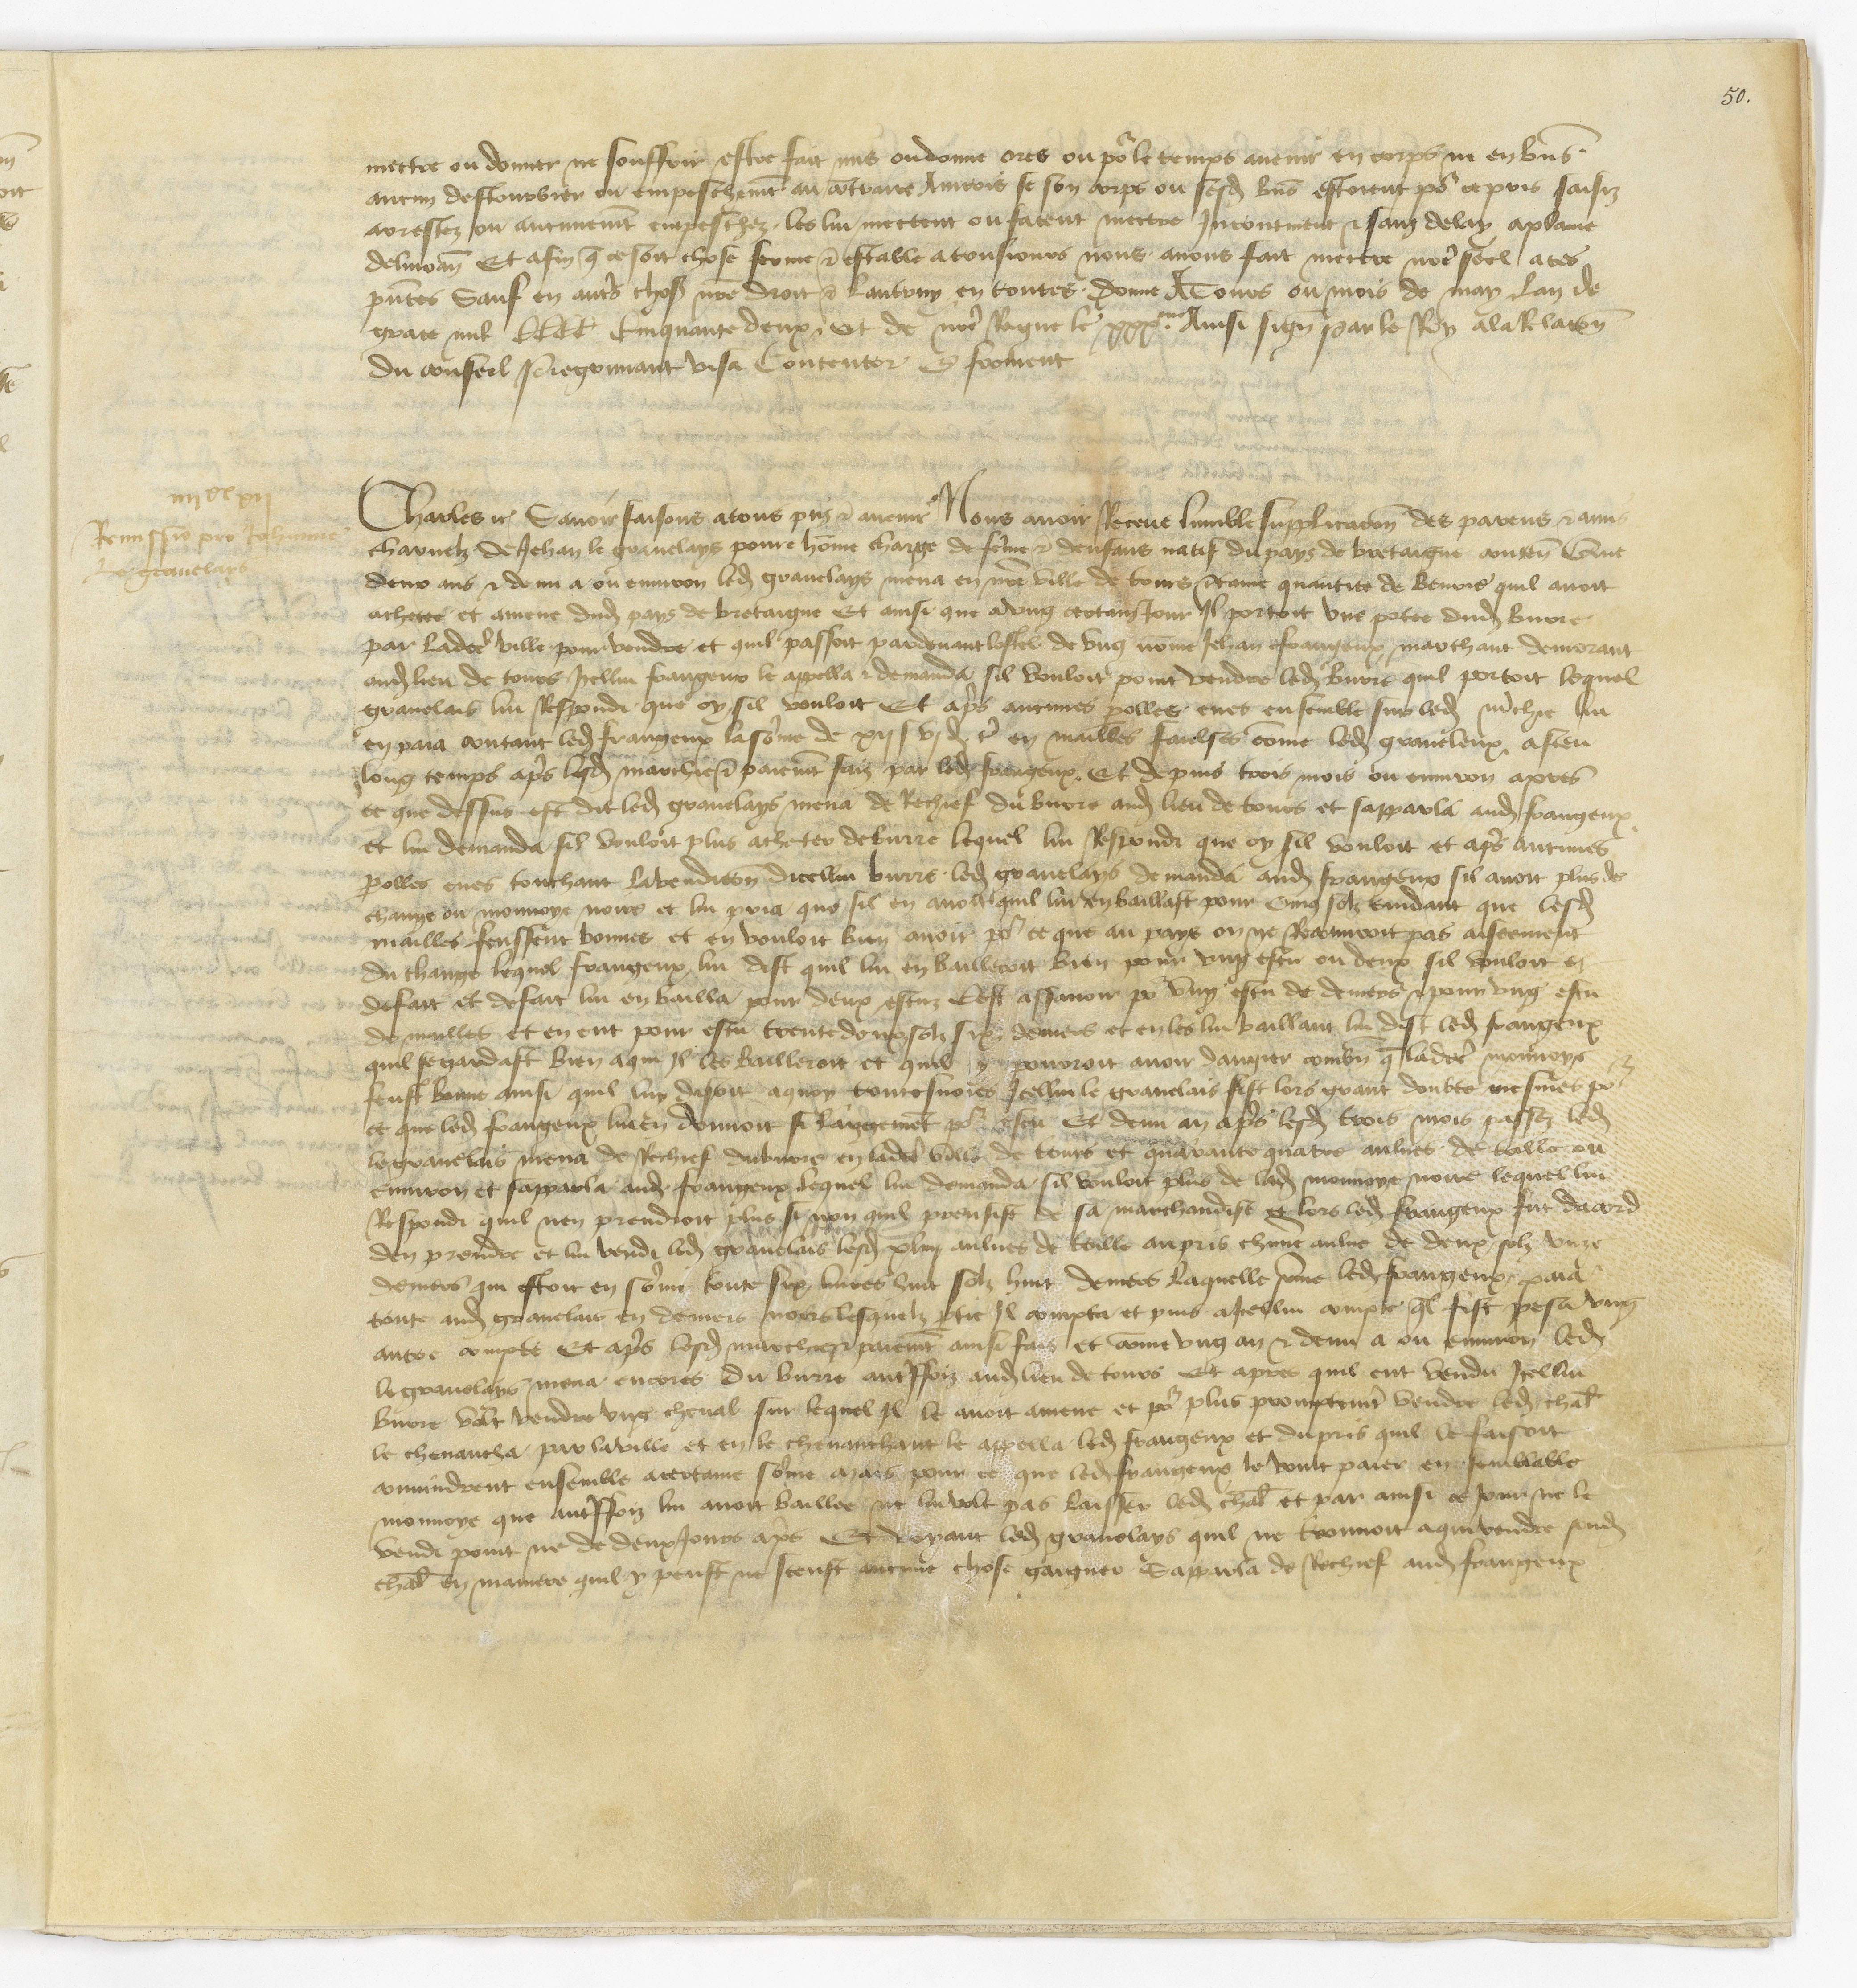 50.
mectre ou donner ne souffrir estre fait mis ou donne ores ou po^r le temps avenir en corps ne en bn̄s
aucun destourbier ou empeschemt au contraire Aincois se son corps ou sesd bn̄s estoient po^r ce pris saisiz
arrestez ou aucunemt empeschez les lui mectent ou facent mectre Incontinent & sans delay a plaine
delivran̄ Et afin q̄ ce soit chose ferme & estable a tousiours nous avons fait mectre nr̄e seel a ces
pn̄tes Sauf en aut's choses nr̄e droit & lautruy en toutes Donne A Tours ou mois de may Lan de
grace mil CCCC Cinquante deux Et de nr̄e Regne le xxx^me Ainsi signe Par le Roy a la Relacōn
du conseil visa Contentor froment
Remissio pro Johanne
Le gravelays
Charles &c Savoir faisons a tous pn̄s & avenir Nous avoir Receue lumble supplicacōn des parens & amis
charnelz de Jehan le gravelays povre hōme charge de fēme & denfans natif du pays de bretaigne conten̄ Que
deux ans & demi a ou environ led gravelays mena en nr̄e ville de tours c̄taine quantite de beurre quil avoit
achetee et amene dud pays de bretaigne Et ainsi que a ung certain Jour Il portoit une potee dud burre
par ladc̄te ville pour vendre et quil passoit pardevant lostel de ung nōme Jehan frangeux marchant demorant
oud lieu de tours Icellui frangeux le appella & demanda sil vouloit point vendre led burre quil portoit lequel
gravelais lui Respondi que oy sil vouloit Et ap̄s aucunes p̄olles eues ensemble sur led m̄chie lui
en paia contant led frangeux la sōme de xii s vi d t̄ en mailles faulses cōme led graveleux a sceu
long temps ap̄s lesd marchie & paiemt fais par led frangeux Et depuis trois mois ou environ apres
ce que dessus est dit led gravelays mena de Rechief du burre aud lieu de tours et sapparla aud frangeux
et lui demanda sil vouloit plus acheter de burre lequel lui Respondi que oy sil vouloit et ap̄s aucunes
p̄olles eues touchant la vendicōn dicellui burre led gravelays demanda aud frangeux sil avoit plus de
change ou monnoye noire et lui pria que sil en avoit quil lui en baillast pour cinq solz cuidant que lesd
mailles feussent bonnes et en vouloit bien avoir po^r ce que au pays on ne Recouvroit pas aiseement
du change lequel frangeux lui dist quil lui en bailleroit bien pour ung escu ou deux sil vouloit et
de fait et de fait lui en bailla pour deux escuz Cest assavoir po^r ung escu de deniers & pour ung escu
de mailles et en eut pour escu trente deux solz six deniers et en les lui baillant lui dist led frangeux
quil se gardast bien a qui Il les bailleroit et quil y pourroit avoir dangier combn̄ q̄ ladc̄te monnoye
feust bonne ainsi quil luy disoit a quoy toutesvoies Icellui le gravelais fist lors grant doubte mesmes po^r
ce que led frangeux lui en donnoit si largemēt po^r escu Et demi an ap̄s lesd trois mois passez led
le gravelais mena de Rechief du burre en ladc̄te ville de tours et quarante quatre aulnes de toille ou
environ et sapparla aud frangeux lequel lui demanda sil vouloit plus de lad monnoye noire lequel lui
Respondi quil nen prendroit plus si non quil prensist de sa marchandise et lors led frangeux fut dacord
den prendre et lui vendi led gravelais lesd xliiii aulnes de toille au pris chūne aulne de deux solz unze
deniers qui estoit en sōme toute six livres huit solz huit deniers Laquelle sōme led frangeux paia
toute aud gravelais en deniers noirs lesquelz p̄tie Il compta et puis a Icellui compte q̄l fist pesa ung
autre compte Et ap̄s lesd marchie & paiemt ainsi fais et cōme ung an & demi a ou environ led
le gravelays mena encores du burre autreffoiz aud lieu de tours Et apres quil eut vendu Icellui
burre volt vendre ung cheval sur lequel Il le avoit amene et po^r plus promptemt vendre led chl̄
le chevaucha par la ville et en le chevauchant le appella led frangeux et du pris quil le faisoit
convindrent ensemble a certaine sōme mais pour ce que led frangeux le voult paier en semblable
monnoye que autreffoiz lui avoit baillee ne lui volt pas laisser led chl̄ et par ainsi ce jour ne le
vendi point ne de deux Jours ap̄s Et voyant led gravelays quil ne trouvoit a qui vendre sond
chl̄ en maniere quil y peust ne sceust aucune chose gangner Sapparla de Rechief aud frangeux